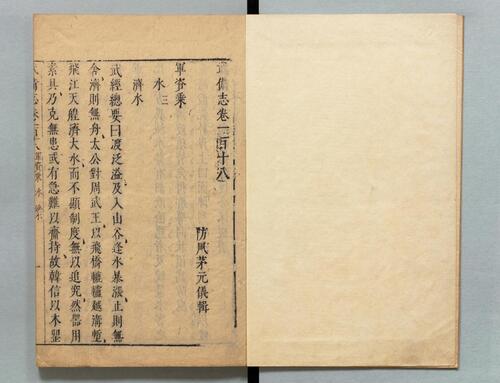 武備志卷一百十八
防風茅元儀輯
軍資乗
水三
濟水
武經總要曰渡泛溢及入山谷逢水暴漲止則無
令濟則無舟太公對周武王以飛橋轆轤越溝塹
飛江天艎濟大水而不顯制度無以追究然器用
素具乃克無患或有急難以齎持故韓信以木罌
武備志卷一百十八 軍資乗 水 濟水 一